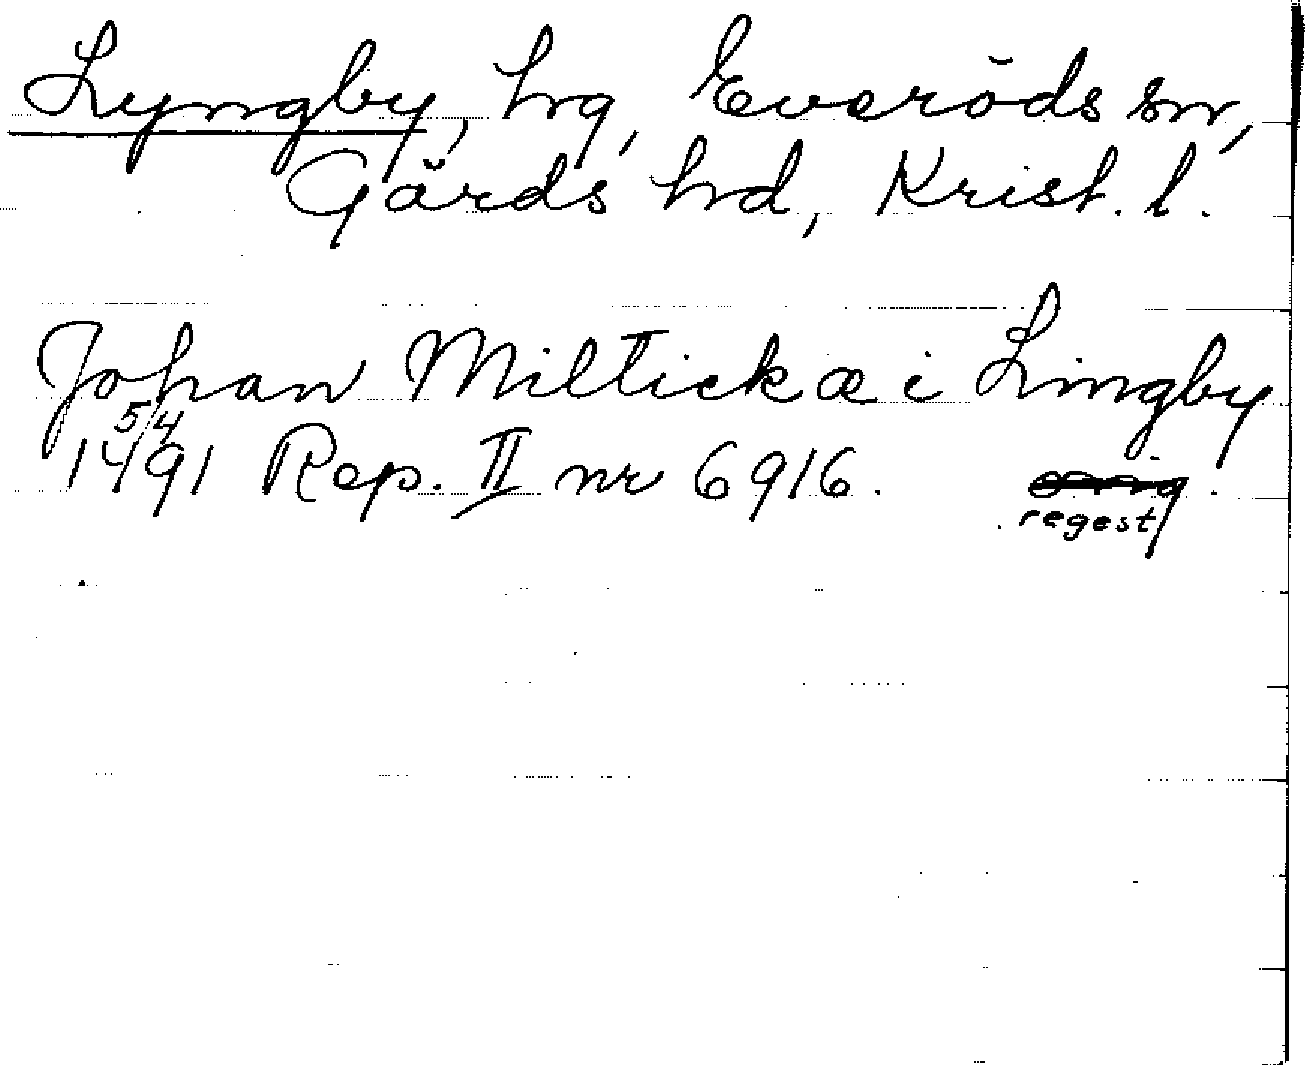 Lyngby, hg, Everöds sn,
Gärds hd, Krist. l.
Johan Miltickæ i Lingby
5/4
1491 Rep. II nr 6916.
regest